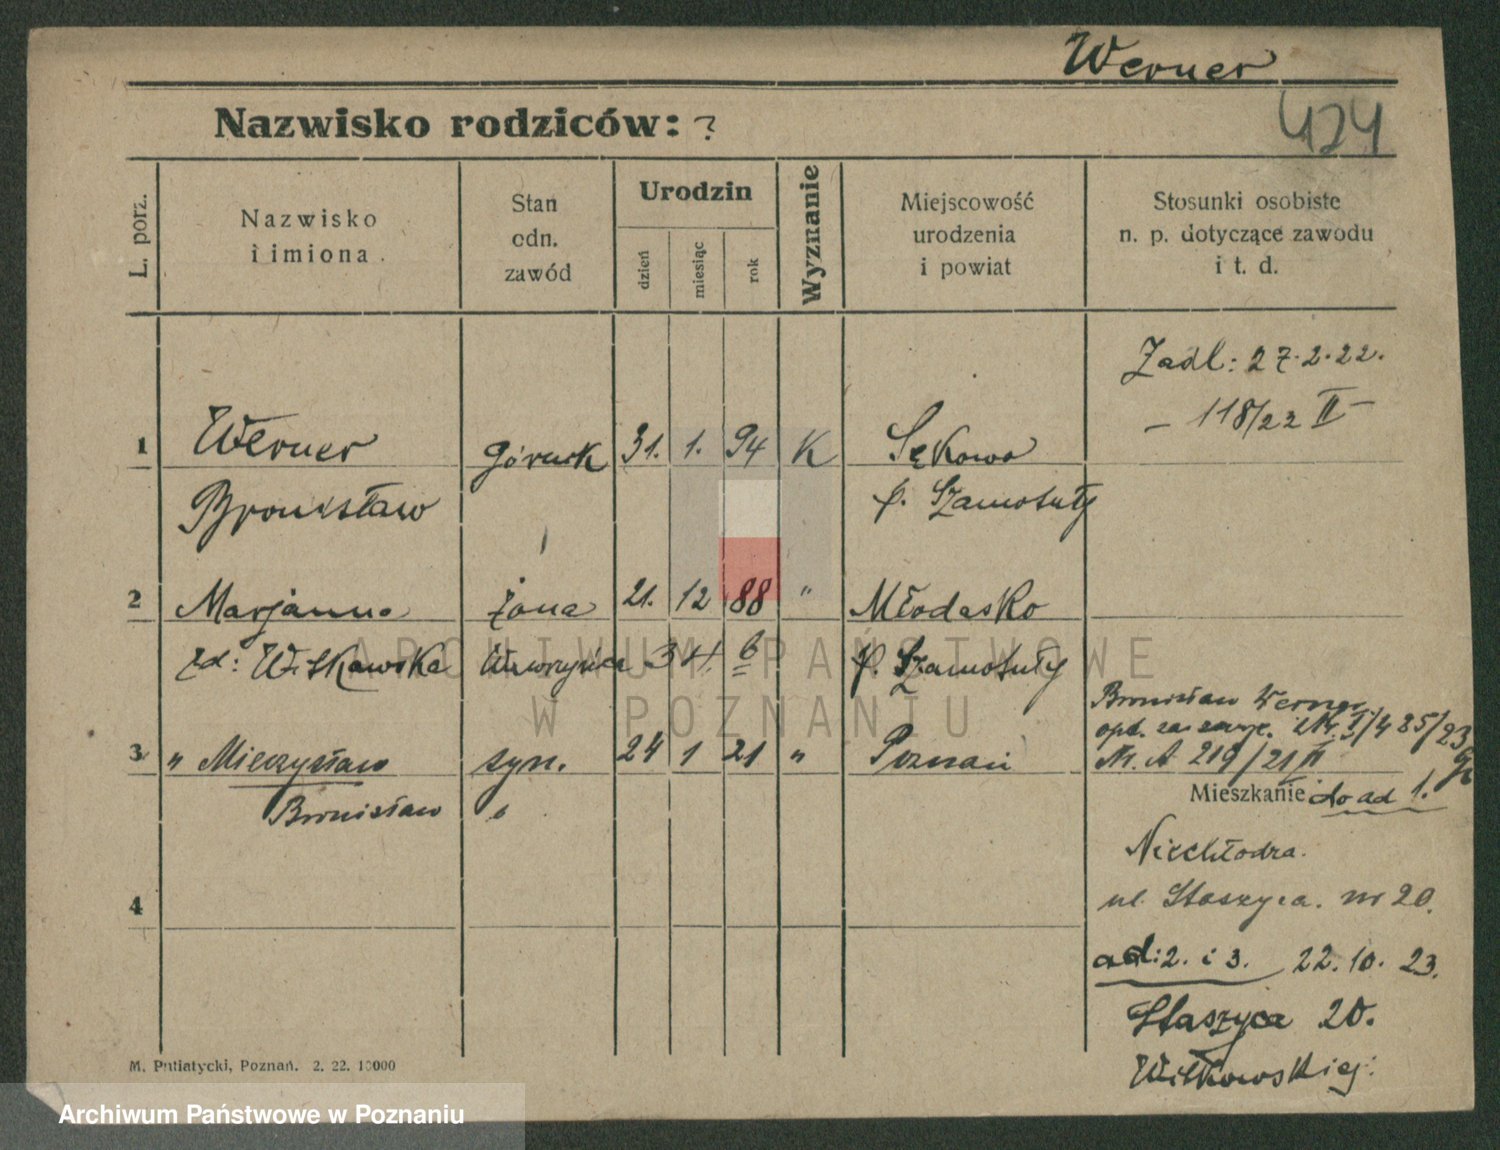 Werner
424
Nazwisko rodziców: ?
L. porz.
Nazwisko i imiona.
Stan odn. zawód
Urodzin
dzień
miesiąc
rok
Wyznanie
Miejscowość urodzenia i powiat
Stosunki osobiste n. p. dotyczące zawodu i t. d.
Zadl: 27.2.22.
– 118/22 II –
1 Werner górnik 31. 1. 94 K Sękowo
Bronisław p. Szamotuły
2 Marjanna żona 21. 12 88 " Młodasko
zd: Witkowska Wawrzyńca 34 6 p. Szamotuły
Bronisław Werner
opd. za
3 " Mieczysław syn. 24 1 21 " Poznań
Nr. A 219/21 II
Bronisław 6
Mieszkanie do ad 1.
Niechłodza.
ul. Staszyca. nr 20.
4
ad: 2. i 3. 22.10. 23.
Staszyca 20.
Witkowskiej:
M. Putiatycki, Poznań. 2. 22. 10000
ARCHIWUM PAŃSTWOWE
W POZNANIU
Archiwum Państwowe w Poznaniu